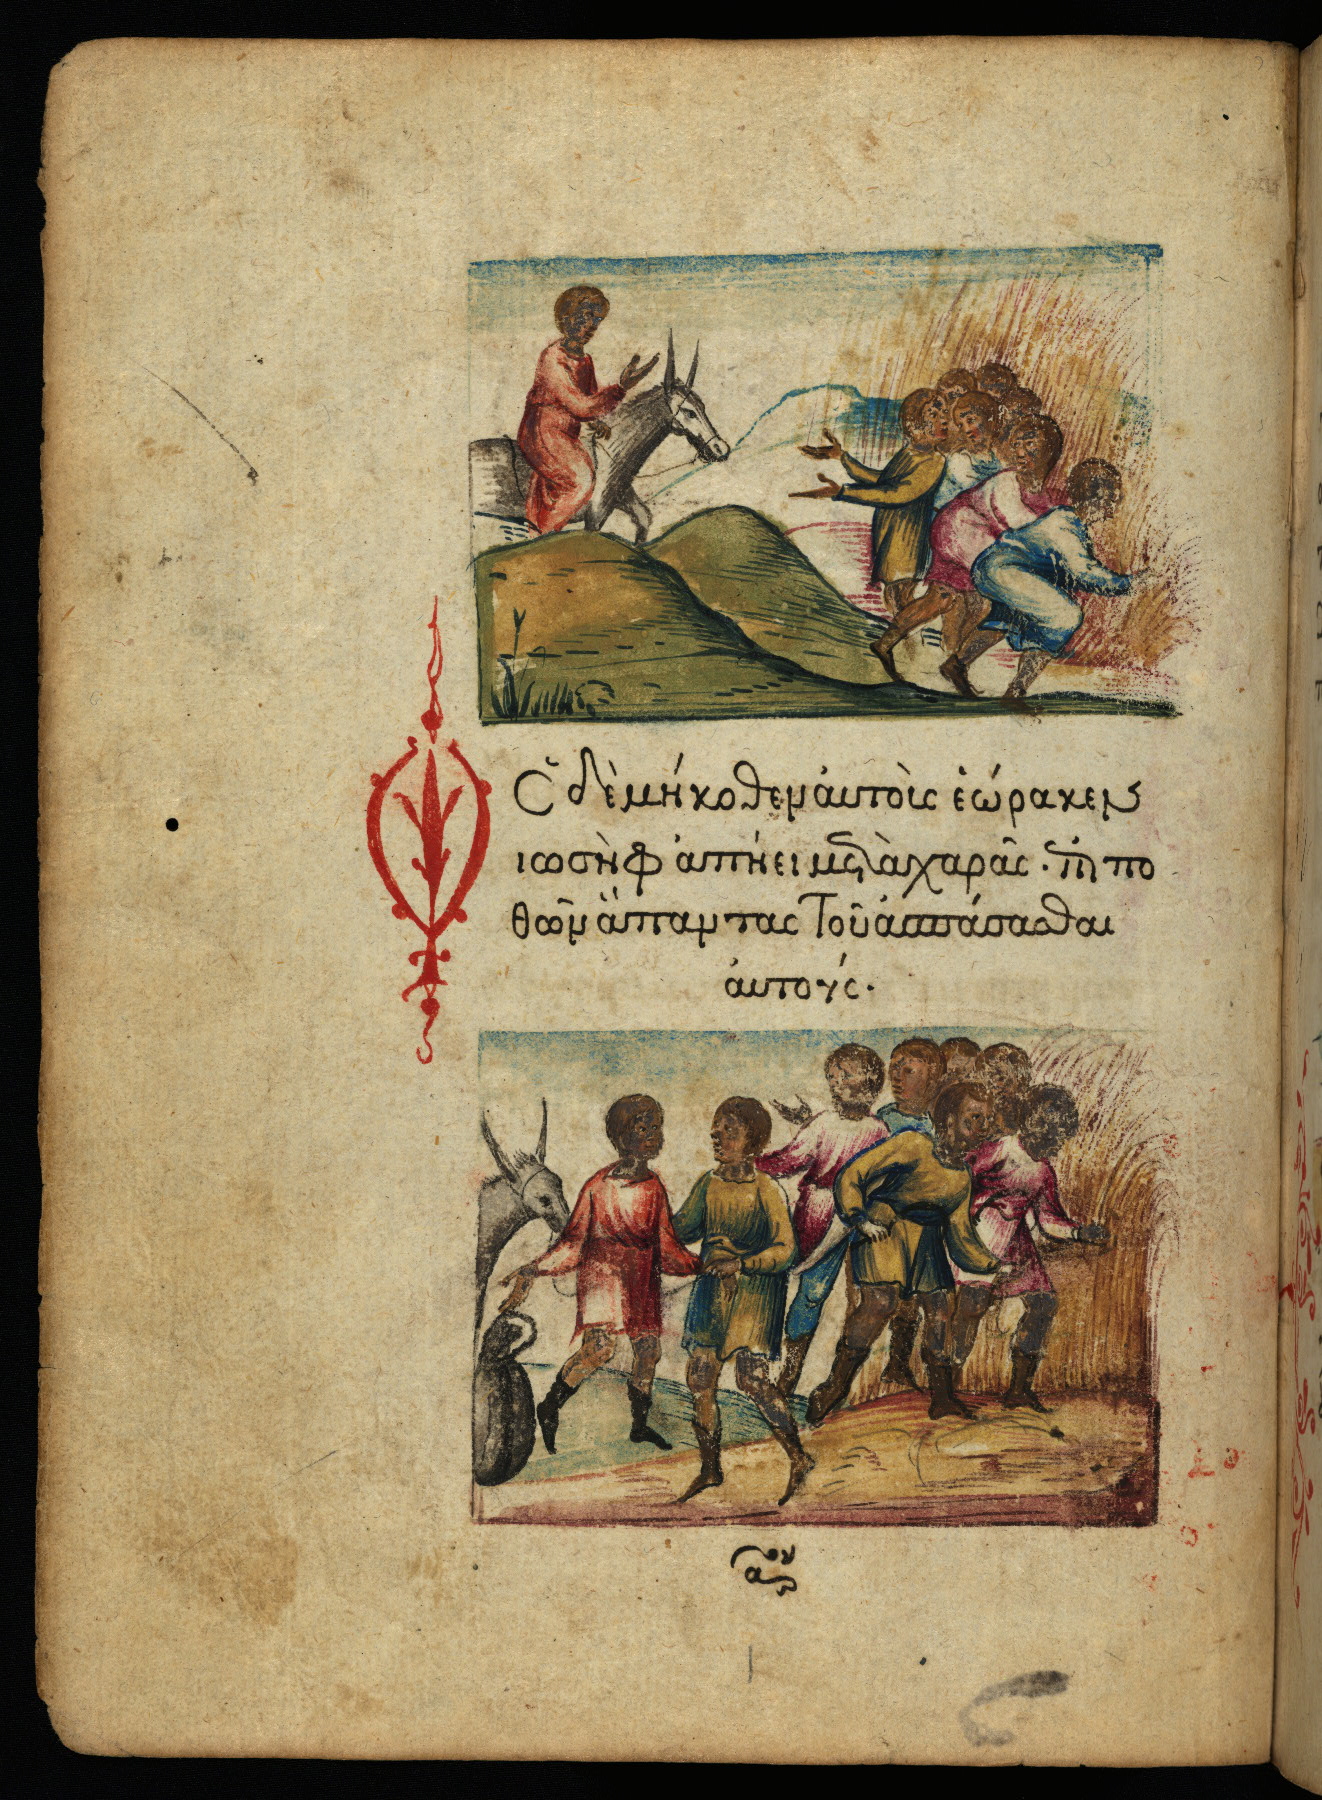 Ὡς δὲ μήκοθεν ἀυτοὶς ἑώρακεν
ιωσὴφ ἀπήει μετὰ χαρᾶς · ἦν πο
θῶν ἅπαντας Τοῦ ἀσπάσασθαι
ἀυτούς ·